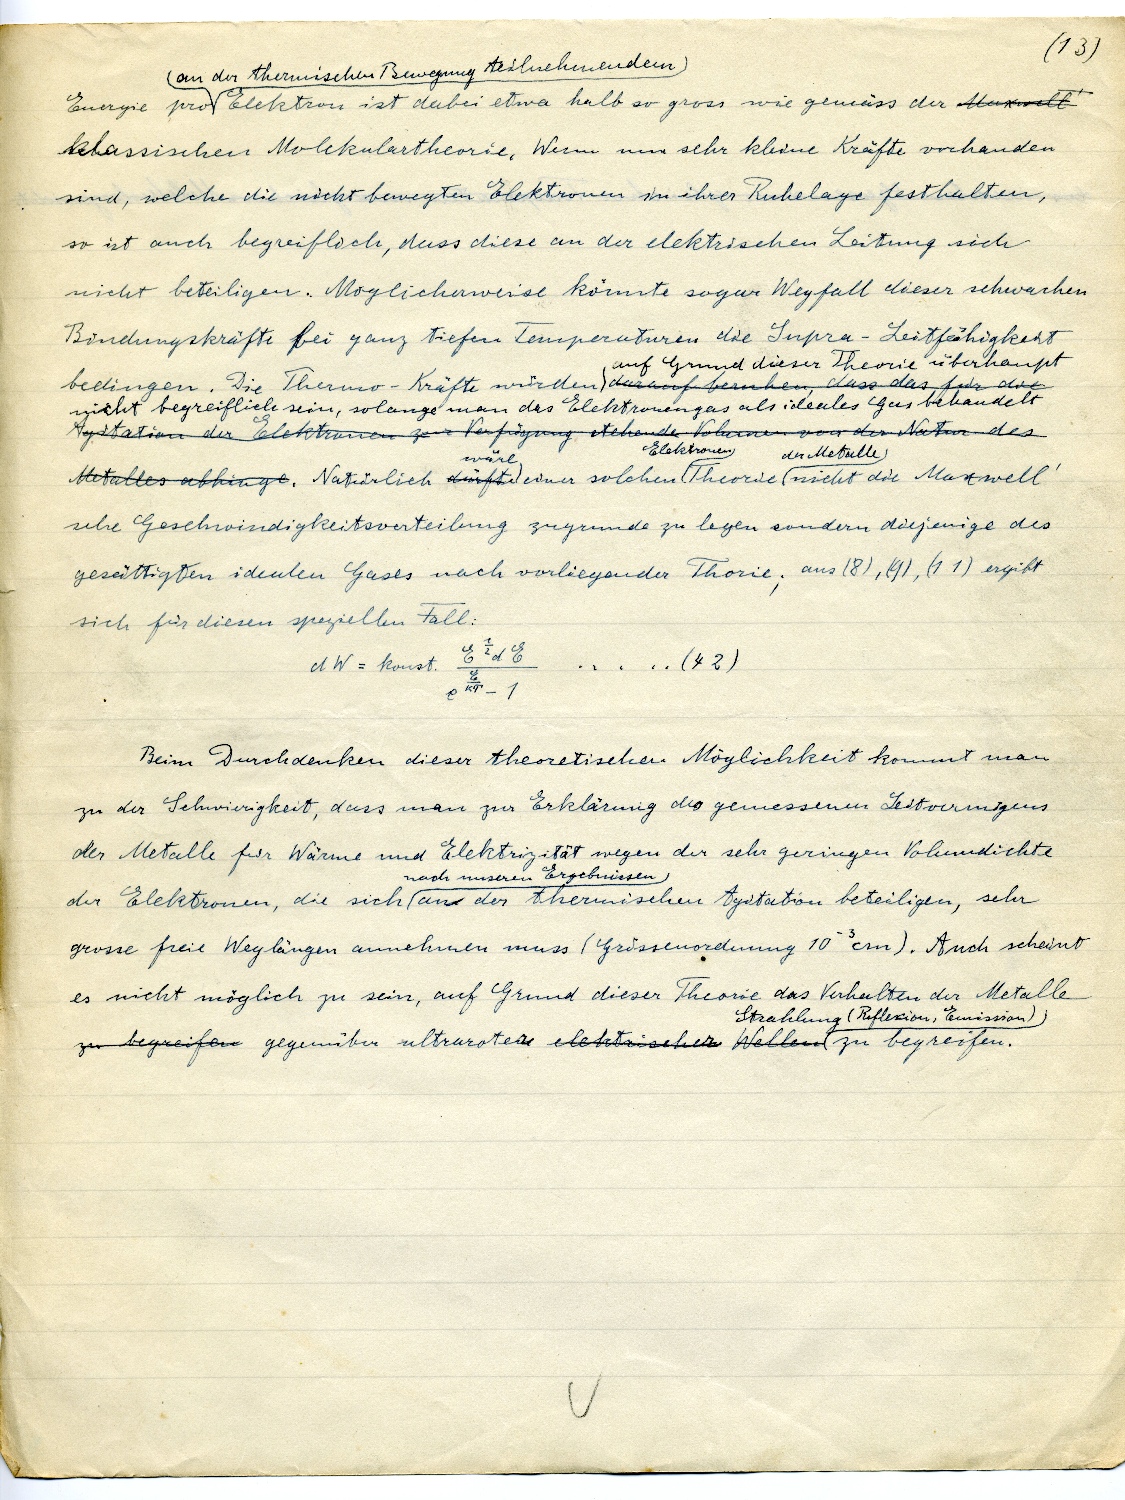 (13)
(an der thermischen Bewegung teilnehmendem)
Energie pro Elektron ist dabei etwa halb so gross wie gemäss der Maxwell'
klassischen Molekulartheorie. Wenn nun sehr kleine Kräfte vorhanden
sind, welche die nicht bewegten Elektronen in ihrer Ruhelage festhalten,
so ist auch begreiflich, dass diese an der elektrischen Leitung sich
nicht beteiligen. Möglicherweise könnte sogar Wegfall dieser schwachen
Bindungskräfte bei ganz tiefen Temperaturen die Supra-Leitfähigkeit
auf Grund dieser Theorie überhaupt
bedingen. Die Thermo-Kräfte würden darauf beruhen, dass das für die
nicht begreiflich sein, solange man das Elektronengas als ideales Gas behandelt
Agitation der Elektronen zur Verfügung stehende Volumen von der Natur des
wäre Elektronen der Metalle
Metalles abhinge. Natürlich dürfte einer solchen Theorie nicht die Maxwell'
sche Geschwindigkeitsverteilung zugrunde zu legen sondern diejenige des
gesättigten idealen Gases nach vorliegender Thorie; aus (8), (9), (11) ergibt
sich für diesen speziellen Fall:
dW = konst. E^{1/2} dE / (e^{E/kT} - 1) ..... (42)
Beim Durchdenken dieser theoretischen Möglichkeit kommt man
zu der Schwierigkeit, dass man zur Erklärung des gemessenen Leitvermögens
der Metalle für Wärme und Elektrizität wegen der sehr geringen Volumdichte
nach unseren Ergebnissen
der Elektronen, die sich an der thermischen Agitation beteiligen, sehr
grosse freie Weglängen annehmen muss (Grössenordnung 10^{-3} cm). Auch scheint
es nicht möglich zu sein, auf Grund dieser Theorie das Verhalten der Metalle
Strahlung (Reflexion, Emission)
zu begreifen gegenüber ultraroter elektrischer Wellen zu begreifen.